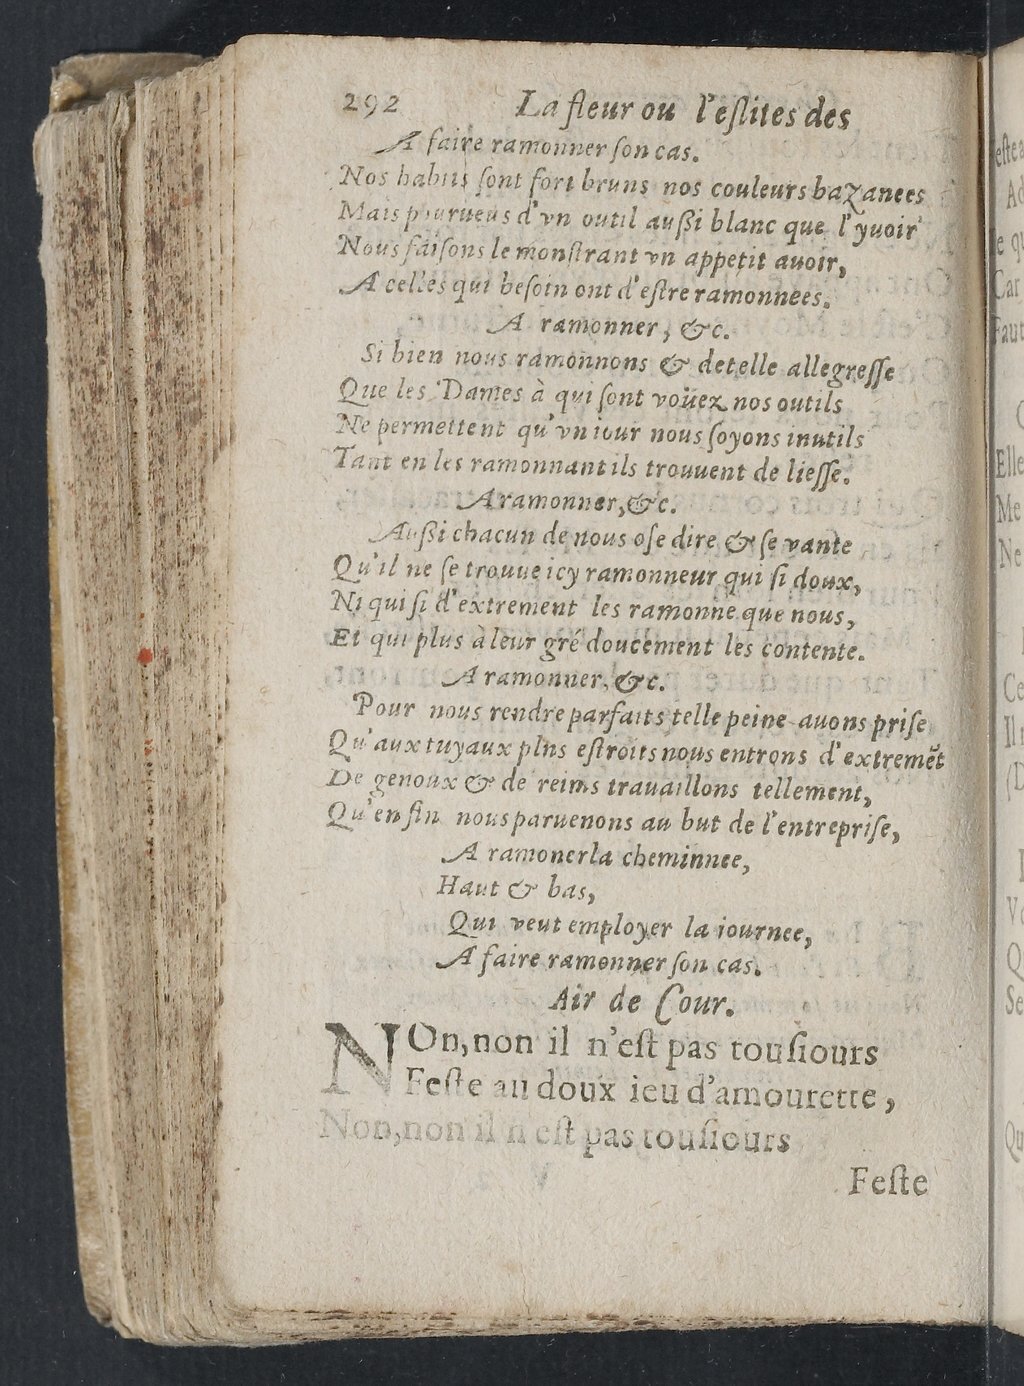 292 La fleur ou l'eſlites des
A faire ramonner ſon cas.
Nos habits ſont fort bruns nos couleurs bazanees
Mais pourueus d'vn outil auſſi blanc que l'yuoir
Nous faiſons le monſtrant vn appetit auoir,
A celles qui beſoin ont d'eſtre ramonnees.
A ramonner, &c.
Si bien nous ramonnons & detelle allegreſſe
Que les Dames à qui ſont voüez nos outils
Ne permettent qu'vn iour nous ſoyons inutils
Tant en les ramonnant ils trouuent de lieſſe.
A ramonner, &c.
Auſſi chacun de nous oſe dire & ſe vante
Qu'il ne ſe trouue icy ramonneur qui ſi doux,
Ni qui ſi d'extrement les ramonne que nous,
Et qui plus à leur gré doucement les contente.
A ramonner, &c.
Pour nous rendre parfaits telle peine auons priſe
Qu'aux tuyaux plns eſtroits nous entrons d'extremẽt
De genoux & de reims trauaillons tellement,
Qu'en fin nous paruenons au but de l'entrepriſe,
A ramoner la cheminnee,
Haut & bas,
Qui veut employer la iournee,
A faire ramonner ſon cas.
Air de Cour.
NOn, non il n'eſt pas touſiours
Feſte au doux ieu d'amourette,
Non, non il n'eſt pas touſiours
Feſte